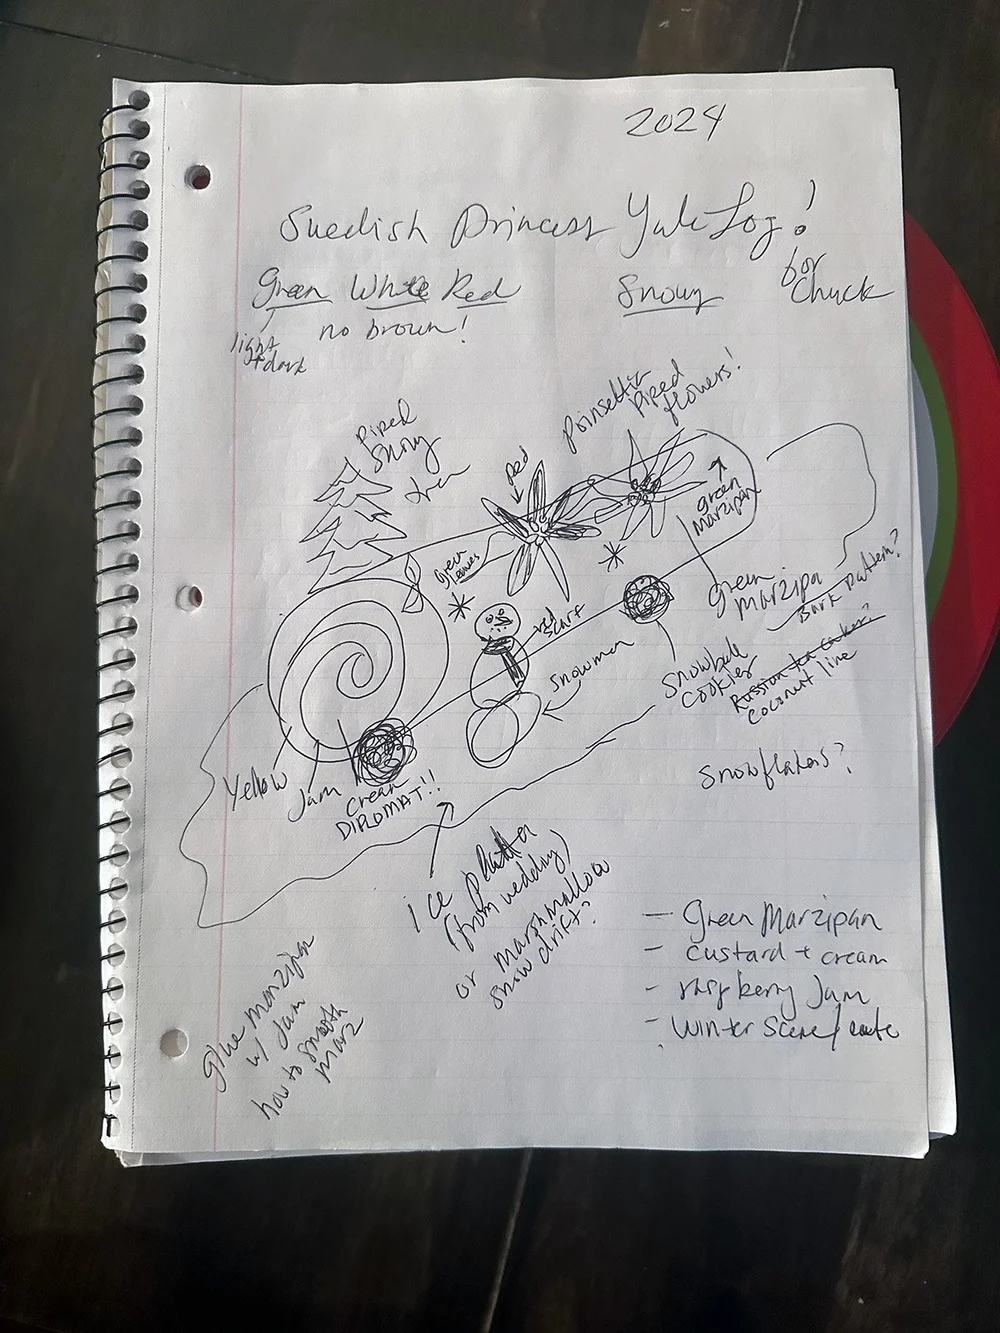 2024
Swedish Princess Yule Log!
for
Chuck
Green White Red
Snowy
no brown!
light
+ dark
Piped
Snowy
tree
Poinsettia
Piped
flowers!
Red
green
marzipan
Green
leaves
red
scarf
Snowman
green
marzipa
Bark pattern?
Snowball
cookies
Russian tea cakes?
coconut line
Snowflakes?
Yellow
Jam
cream
DIPLOMAT!!
ice platter
(from wedding)
or marshmallow
snow drift?
- Green Marzipan
- custard + cream
- raspberry Jam
- Winter Scene / cute
glue marzipan
w/ Jam
how to smooth
marz